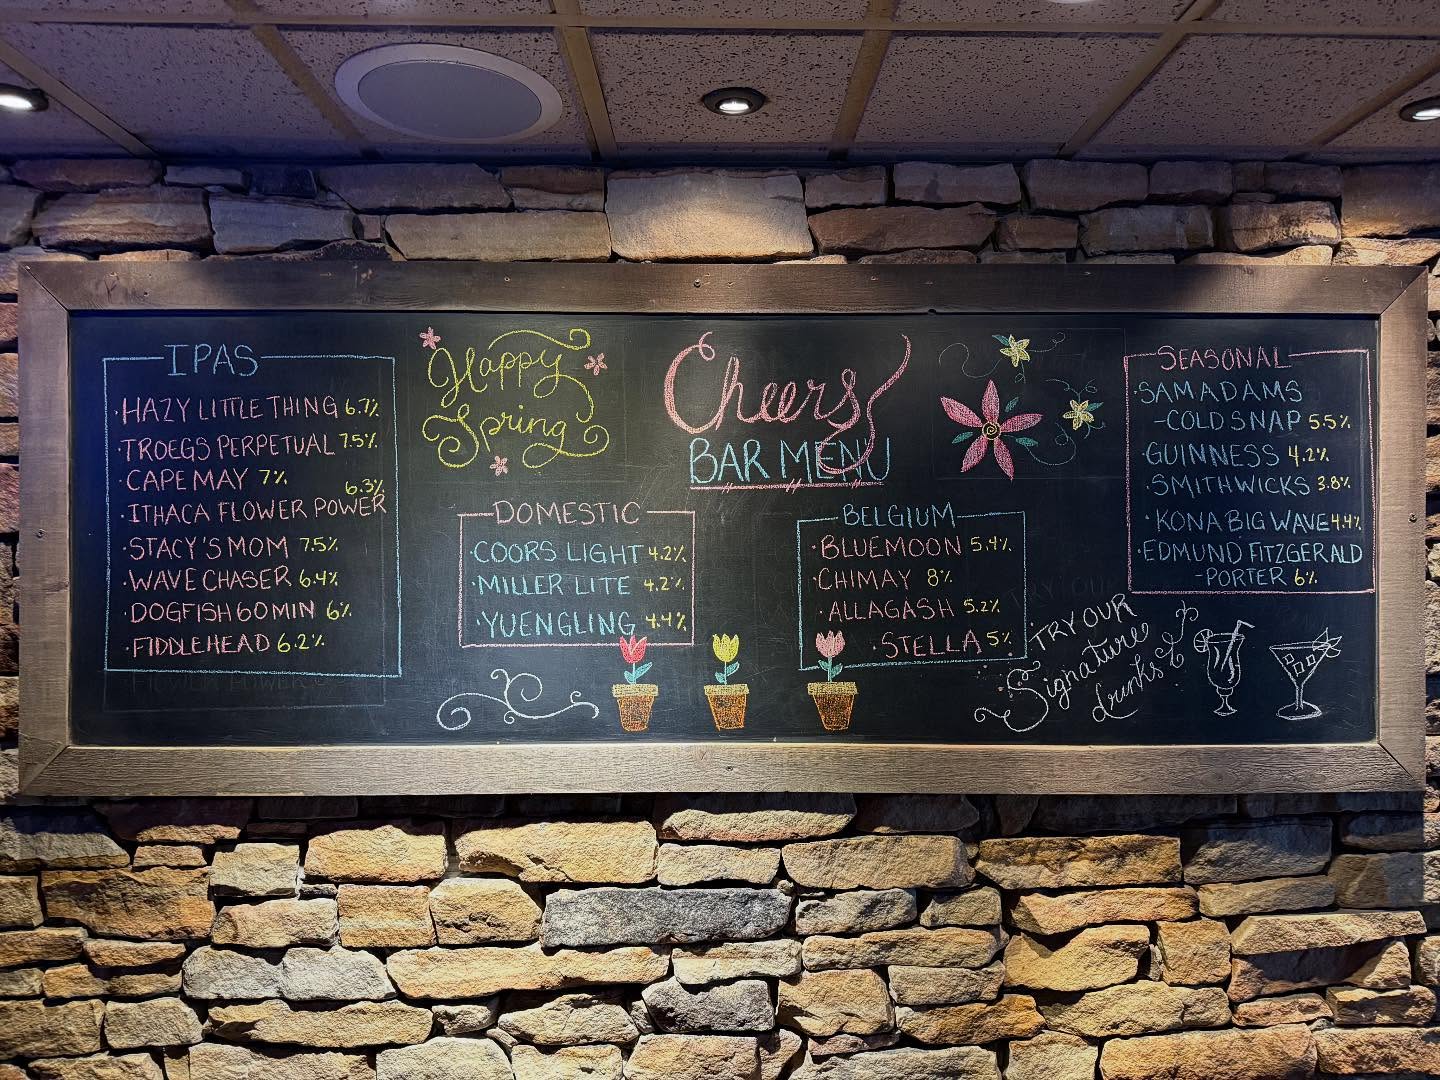 IPAS
·HAZY LITTLE THING 6.7%
·TROEGS PERPETUAL 7.5%
·CAPE MAY 7%
6.3%
·ITHACA FLOWER POWER
·STACY'S MOM 7.5%
·WAVE CHASER 6.4%
·DOGFISH 60 MIN 6%
·FIDDLEHEAD 6.2%
Happy
Spring
Cheers
BAR MENU
DOMESTIC
·COORS LIGHT 4.2%
·MILLER LITE 4.2%
·YUENGLING 4.4%
BELGIUM
·BLUEMOON 5.4%
·CHIMAY 8%
·ALLAGASH 5.2%
·STELLA 5%
SEASONAL
·SAM ADAMS
-COLD SNAP 5.5%
·GUINNESS 4.2%
·SMITHWICKS 3.8%
·KONA BIG WAVE 4.4%
·EDMUND FITZGERALD
-PORTER 6%
TRY OUR
Signature
drinks